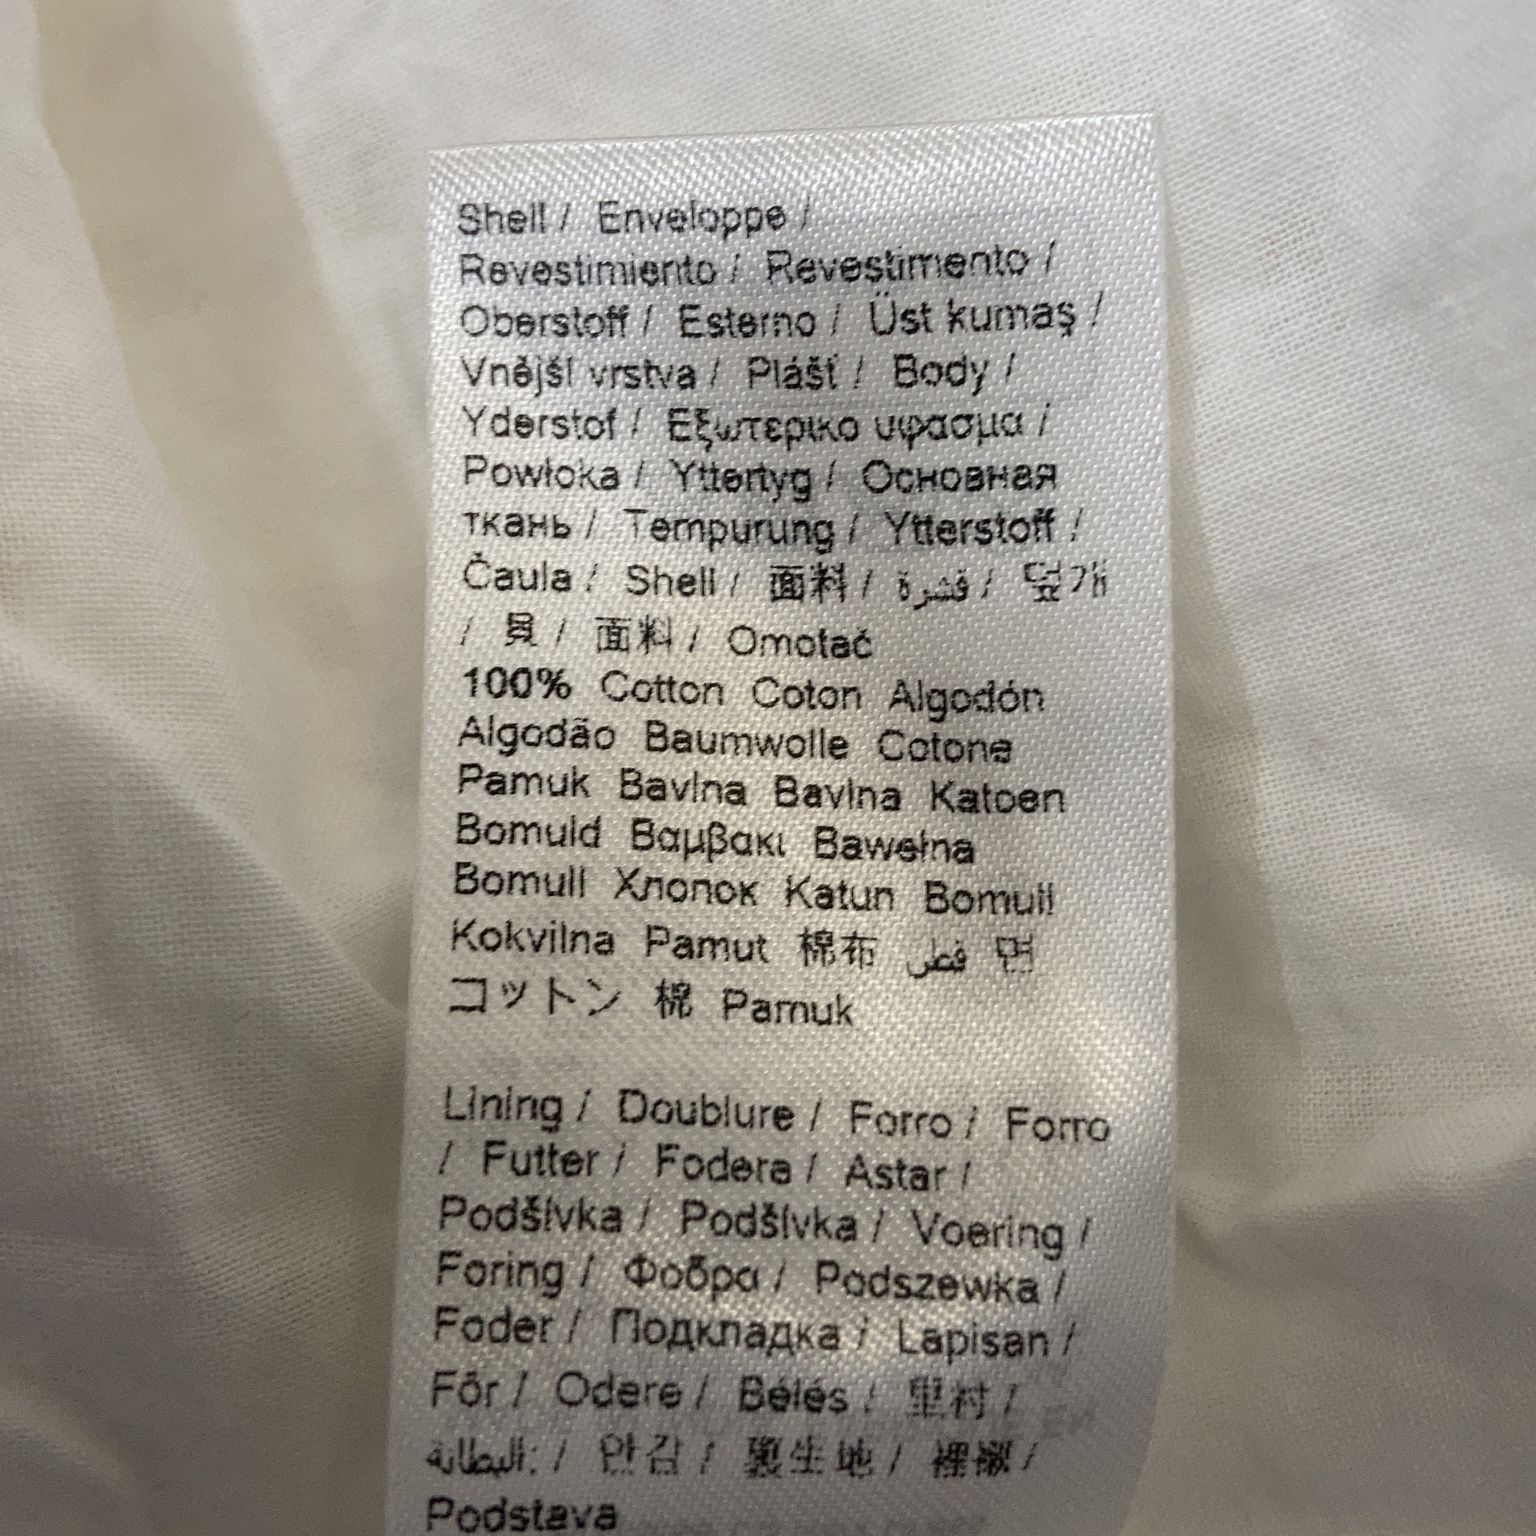 Shell / Enveloppe /
Revestimiento / Revestimento /
Oberstoff / Esterno / Üst kumaş /
Vnější vrstva / Plášť / Body /
Yderstof / Εξωτερικο υφασμα /
Powłoka / Yttertyg / Основная
ткань / Tempurung / Ytterstoff /
Čaula / Shell / 面料 / قشرة / 덮개
/ 貝 / 面料 / Omotač
100% Cotton Coton Algodón
Algodão Baumwolle Cotone
Pamuk Bavlna Bavlna Katoen
Bomuld Βαμβακι Bawełna
Bomull Хлопок Katun Bomull
Kokvilna Pamut 棉布 قطن 면
コットン 棉 Pamuk
Lining / Doublure / Forro / Forro
/ Futter / Fodera / Astar /
Podšívka / Podšívka / Voering /
Foring / Φοδρα / Podszewka /
Foder / Подкладка / Lapisan /
Fôr / Odere / Bélés / 里衬 /
البطانة: / 안감 / 裏生地 / 裡襯 /
Podstava